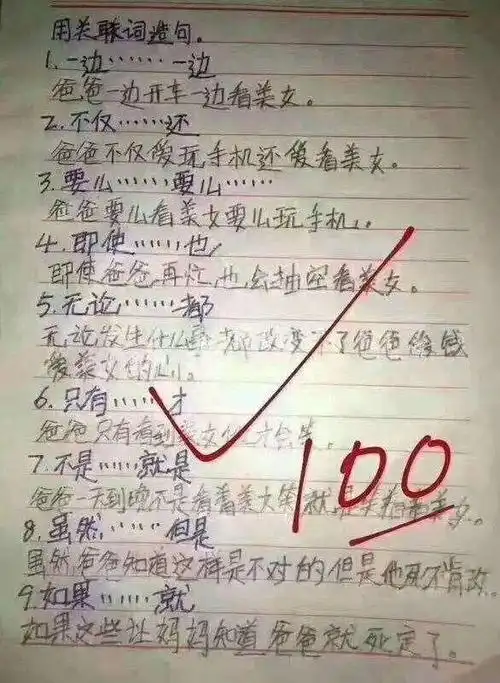 用关联词造句。
1.一边……一边
爸爸一边开车一边看美女。
2.不仅……还
爸爸不仅爱玩手机还爱看美女。
3.要么……要么……
爸爸要么看美女要么玩手机。
4.即使……也
即使爸爸再忙,也会抽空看美女。
5.无论……都
无论发生什么事都改变不了爸爸
爱美女的心。
6.只有……才
爸爸只有看到美女 才会笑。
7.不是……就是
爸爸一天到晚不是看着美女笑就是
8.虽然……但是
虽然爸爸知道这样是不对的但是他死不肯改。
9.如果……就
如果这些让妈妈知道爸爸就死定了。
100